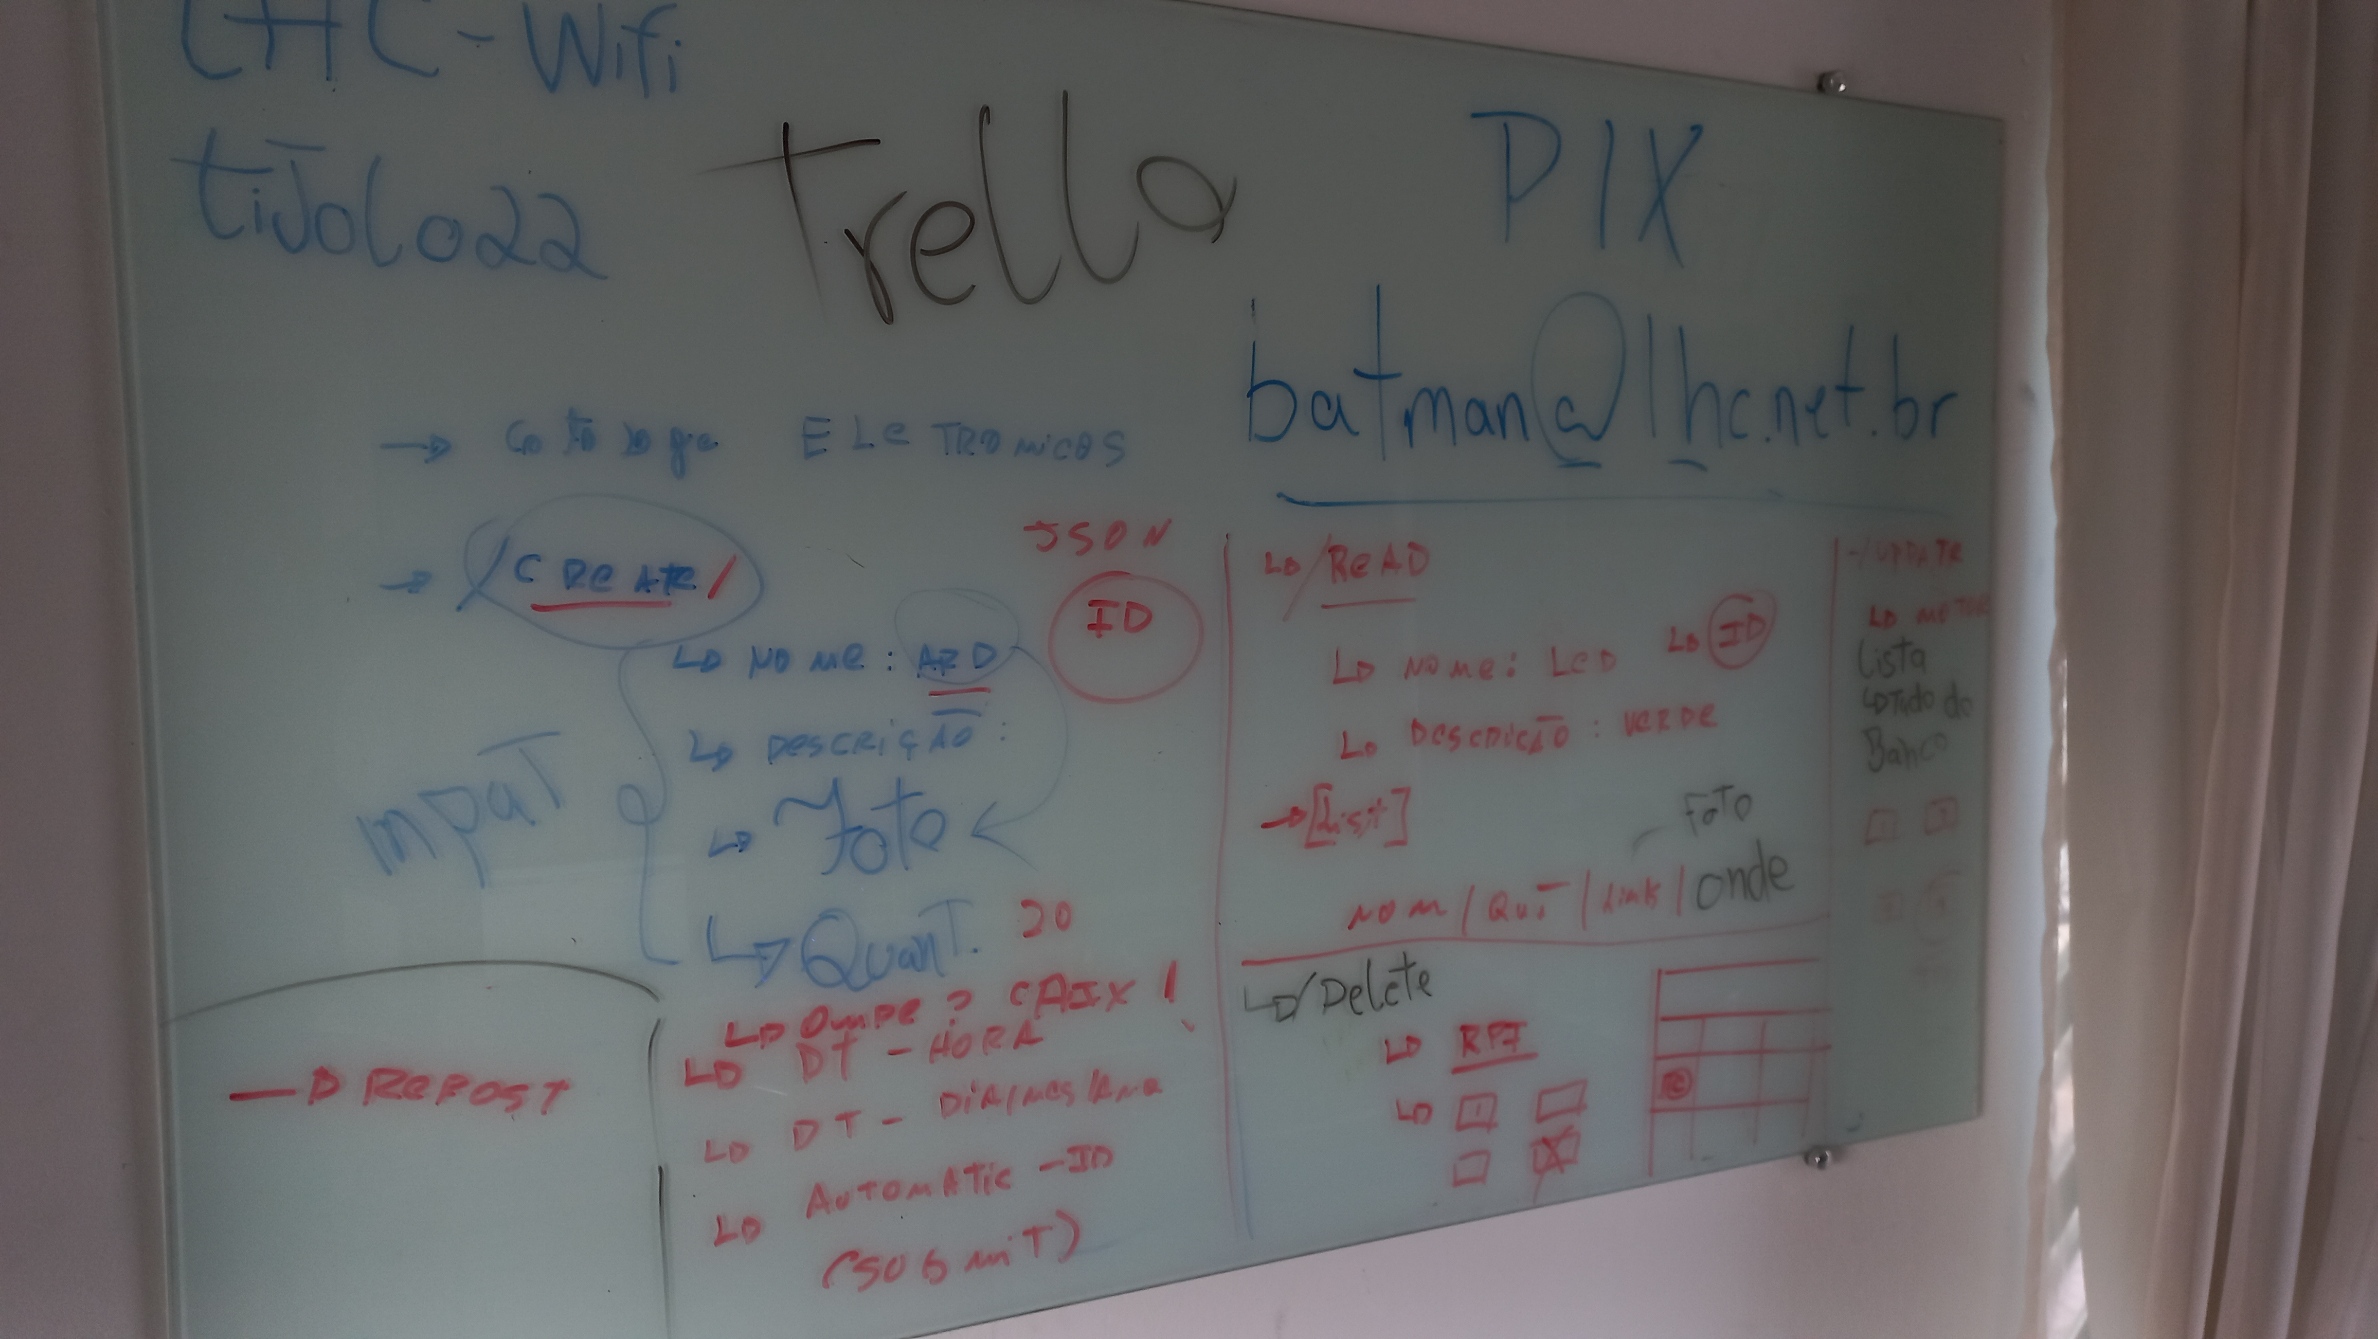 LHC-Wifi
tijolo22
Trello
PIX
batman@lhc.net.br
→ Catologo ELETRONICOS
→ /CREATE/
JSON
ID
↳ NOME: ARD
↳ DESCRIÇÃO:
INPUT
↳ Foto
↳ QuanT. 20
↳ ONDE? CAIX
↳ DT - HORA
↳ DT - DIA/MES/ANO
↳ AUTOMATIC - ID
(SUBMIT)
→ REPOST
↳ /READ
↳ NOME: LED ↳ ID
↳ DESCRIÇÃO: VERDE
→ [List]
FOTO
NOM / QUT / Link / onde
↳ /Delete
↳ RPI
/UPDATE
Lista
↳ Tudo do
Banco